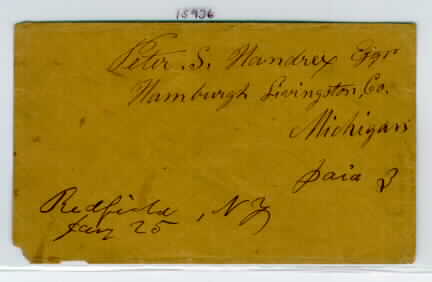 15936
Peter. S. Nandrex Esqr
Hamburgh Livingston, Co.
Michigan
paid 3
Redfield, NY
Jany 25